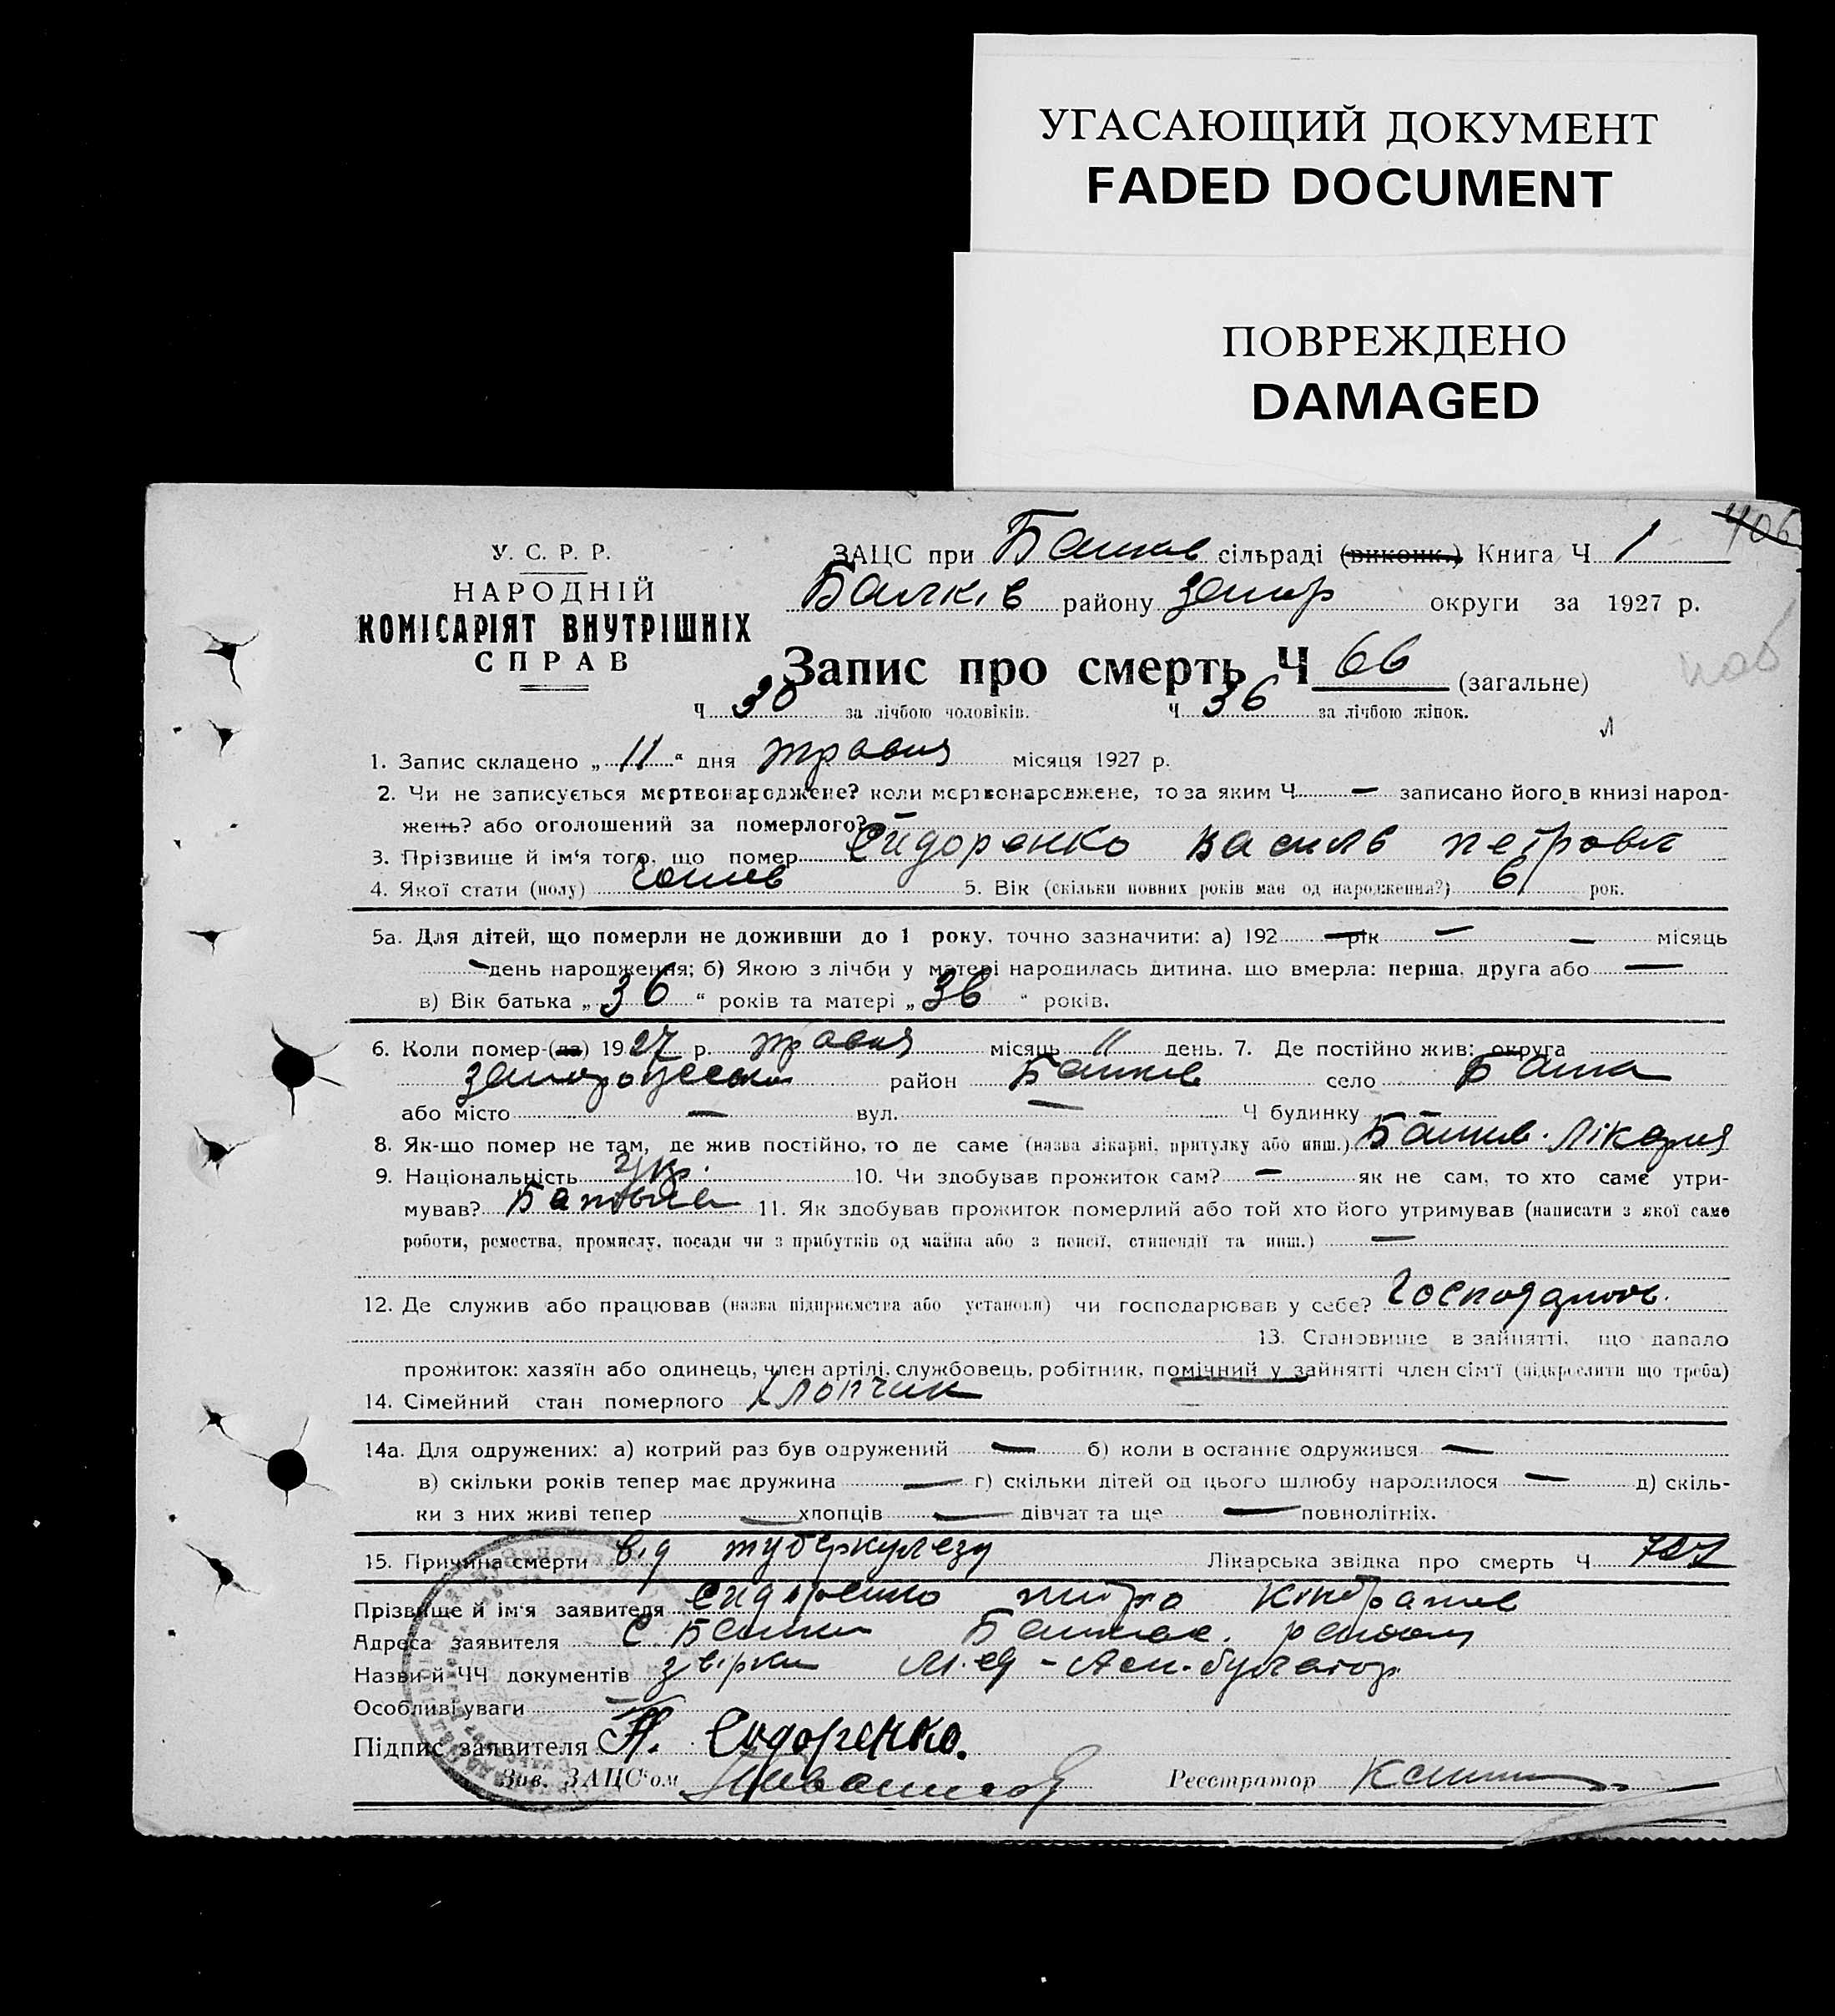 УГАСАЮЩИЙ ДОКУМЕНТ
FADED DOCUMENT
ПОВРЕЖДЕНО
DAMAGED
406
У. С. Р. Р.
НАРОДНІЙ
КОМІСАРІЯТ ВНУТРІШНІХ
СПРАВ
ЗАЦС при сільраді (виконк.) Книга Ч 1
Балків району Запор округи за 1927 р.
Запис про смерть Ч 66 (загальне)
Ч 30 за лічбою чоловіків. Ч 36 за лічбою жінок.
1. Запис складено „ 11 “ дня травня місяця 1927 р.
2. Чи не записується мертвонароджене? коли мертвонароджене, то за яким Ч — записано його в книзі народ-
жень? або оголошений за померлого? —
3. Прізвище й ім'я того, що помер Сидоренко Василь Петров
4. Якої стати (полу) 5. Вік (скільки повних років має од народження?) 6 рок.
5а. Для дітей, що померли не доживши до 1 року, точно зазначити: а) 192 — рік — — місяць
— день народження; б) Якою з лічби у матері народилась дитина, що вмерла: перша, друга або —
в) Вік батька „ 36 “ років та матері „ 36 “ років.
6. Коли помер-(ла) 1927 р. травня місяць 11 день. 7. Де постійно жив: округа
район село
або місто — вул. — Ч будинку —
8. Як-що помер не там, де жив постійно, то де саме (назва лікарні, притулку або инш.) Лікарня
9. Національність Укр. 10. Чи здобував прожиток сам? — як не сам, то хто саме утри-
мував? Батько 11. Як здобував прожиток померлий або той хто його утримував (написати з якої саме
роботи, ремества, промислу, посади чи з прибутків од майна або з пенсії, стипендії та инш.) —
12. Де служив або працював (назва підприємства або установи) чи господарював у себе?
13. Становище в зайнятті, що давало
прожиток: хазяїн або одинець, член артілі, службовець, робітник, помічний у зайнятті член сім'ї (підкреслити що треба)
14. Сімейний стан померлого Хлопчик
14а. Для одружених: а) котрий раз був одружений — б) коли в останнє одружився —
в) скільки років тепер має дружина — г) скільки дітей од цього шлюбу народилося — д) скіль-
ки з них живі тепер — хлопців — дівчат та ще — повнолітніх.
15. Причина смерти від туберкулезу Лікарська звідка про смерть Ч
Прізвище й ім'я заявителя Сидоренко Петро
Адреса заявителя С.
Назви й ЧЧ документів
Особливі уваги —
Підпис заявителя П. Сидоренко.
Зав. ЗАЦС'ом Реєстратор